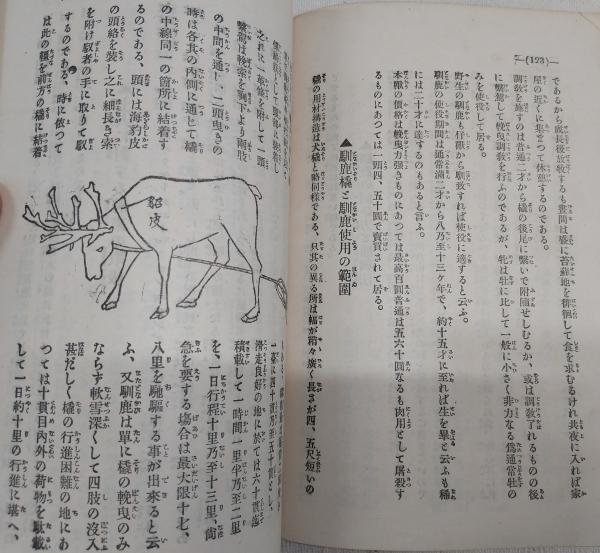 —(123)—
であるから成長後放飼するも晝間は盛に苔蘚地を徘徊して食を求むるけれ共夜に入れば家
屋の近くに集まつて休憩するのである。
調敎を施すのは普通二才から橇の後尾に繫いで附隨せしむるか、或は調敎了れるものの後
に繫駕して輓曳調敎を行ふのであるが、牝は牡に比して一般に小さく非力なる爲通常牡の
みを使役して居る。
野生の馴鹿も仔獸から馴致すれば使役に適すると云ふ。
馴鹿の使役期間は通常滿二才から八乃至十三ケ年で、約十五才に至れば生を畢ると云ふも稀
には二十才に達するのもあると言ふ。
本獸の價格は輓曳力强きものにあつては最高百圓普通は五六十圓なるも肉用として屠殺す
るものにあつては一頭四、五十圓で賣買されて居る。
▲馴鹿橇と馴鹿使用の範圍
橇の用材構造は犬橇と略同樣である、只其の異る所は幅が稍々廣く長さが四、五尺短いの
之れに一革條を附して一頭
繫駕は軛索を胸下より兩股
の中間を通し、二頭曳きの
時は各其の內側に通じて橇
の中線同一の箇所に結着す
るのである、頭には海豹皮
の頭絡を裝し之に細長き索
を附け馭者の手に取りて馭
するのである。時に依つて
は此の綱を前方の橇に結着
皮
一臺に四十貫乃至五十貫とし、
滑走良好の地に於ては六十貫迄
積載して一時間一里半乃至二里
を、一日行程十里乃至十三里、尙
急を要する場合は最大限十七、
八里を馳驅する事が出來ると云
ふ、又馴鹿は單に橇の輓曳のみ
ならず軟雪深くして四肢の沒入
甚だしく橇の行進困難の地にあ
つては十貫目內外の荷物を馱載
して一日約十里の行進に堪へ、